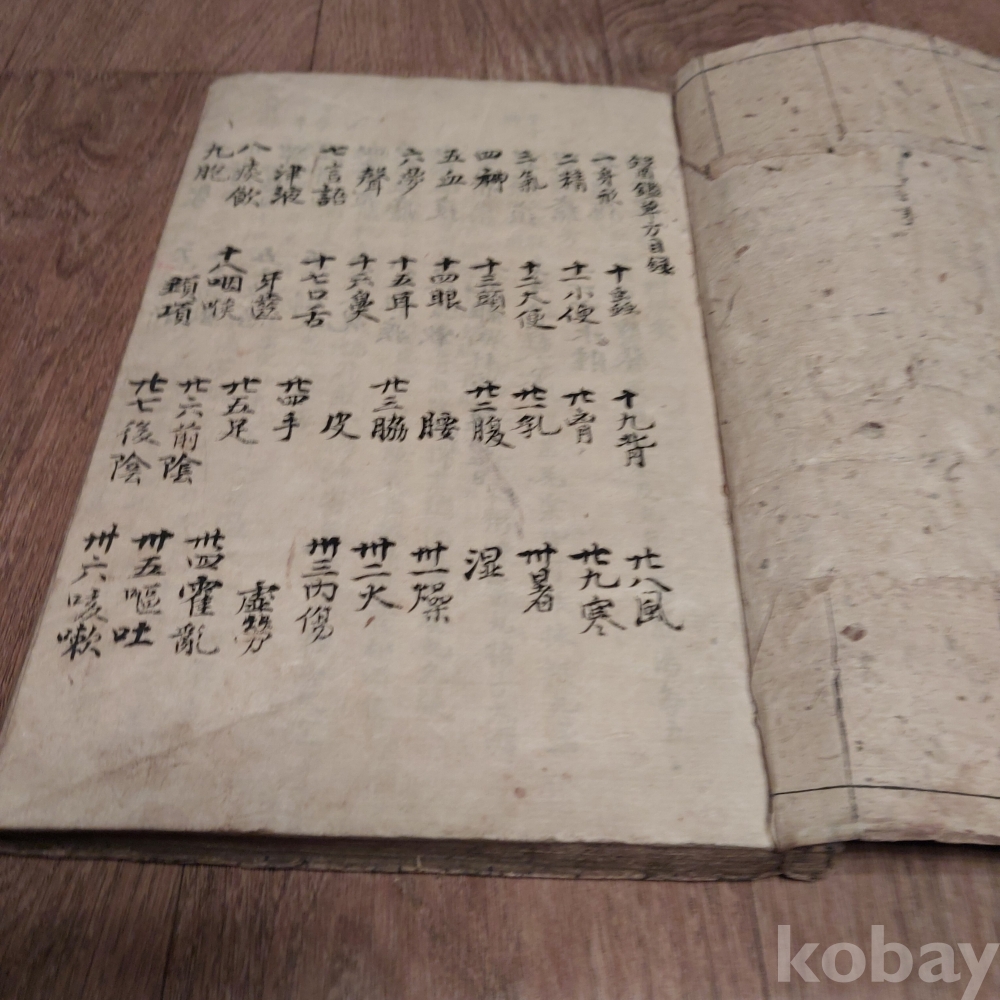 鑑單方目錄
一身形
二精
三氣
四神
五血
六夢
聲
七言語
津液
八痰飲
九胞
十
十一小便
十二大便
十三頭
十四眼
十五耳
十六鼻
十七口舌
牙齒
十八咽喉
頸項
十九背
廿胷
廿一乳
廿二腹
腰
廿三脇
皮
廿四手
廿五足
廿六前陰
廿七後陰
廿八風
廿九寒
卅暑
湿
卅一燥
卅二火
卅三內傷
虛勞
卅四霍亂
卅五嘔吐
卅六咳嗽
kobay